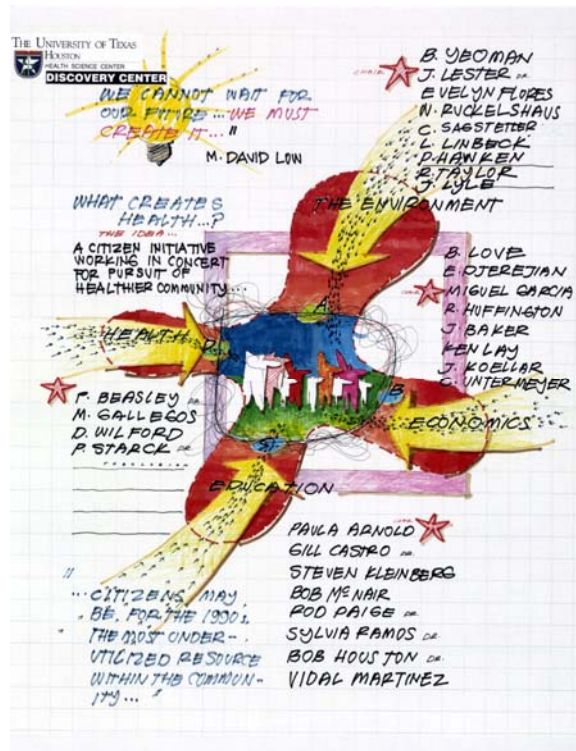 THE UNIVERSITY OF TEXAS
HOUSTON
HEALTH SCIENCE CENTER
DISCOVERY CENTER
WE CANNOT WAIT FOR
OUR FUTURE... WE MUST
CREATE IT... "
M. DAVID LOW
CHAIR
B. YEOMAN
J. LESTER DR.
EVELYN FLORES
W. RUCKELSHAUS
C. SAGSTETTER
L. LINBECK
P. HAWKEN
R. TAYLOR
J. LYLE
THE ENVIRONMENT
WHAT CREATES
HEALTH...?
THE IDEA...
A CITIZEN INITIATIVE
WORKING IN CONCERT
FOR PURSUIT OF
HEALTHIER COMMUNITY...
B. LOVE
E. DJEREJIAN
CHAIR
MIGUEL GARCIA
R. HUFFINGTON
J. BAKER
KEN LAY
J. KOELLAR
C. UNTERMEYER
A
HEALTH
D
B
ECONOMICS
P. BEASLEY DR.
M. GALLEGOS
D. WILFORD
P. STARCK DR.
EDUCATION
CHAIR
PAULA ARNOLD
GILL CASTRO DR.
STEVEN KLEINBERG
BOB McNAIR
ROD PAIGE DR.
SYLVIA RAMOS DR.
BOB HOUSTON DR.
VIDAL MARTINEZ
"
... CITIZENS MAY
BE, FOR THE 1990s,
THE MOST UNDER-
UTILIZED RESOURCE
WITHIN THE COMMUN-
ITY... "